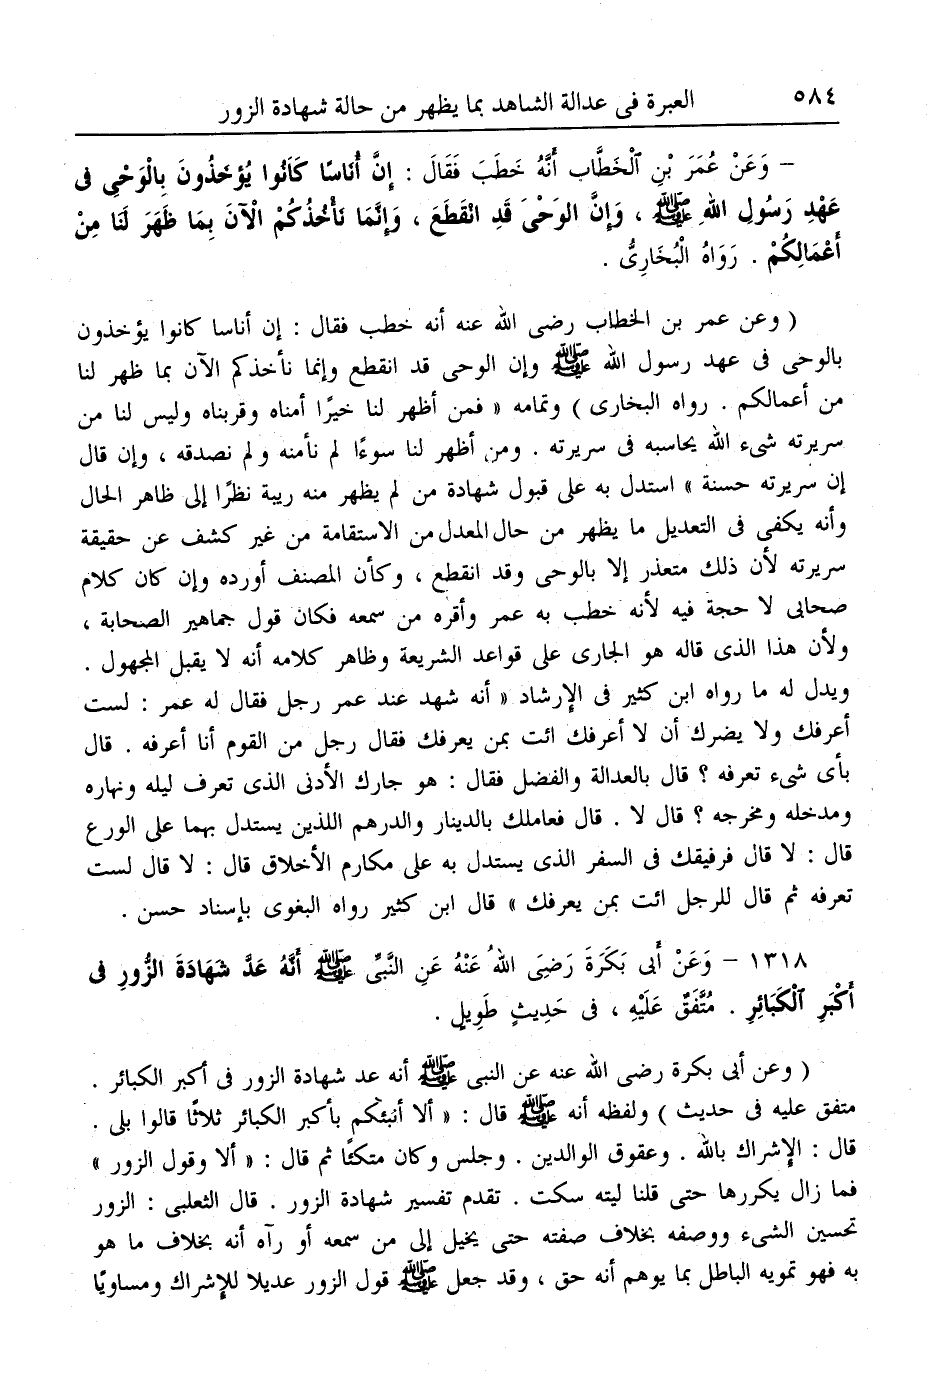 ٥٨٤ العبرة فى عدالة الشاهد بما يظهر من حالة شهادة الزور
– وَعَنْ عُمَرَ بْنِ الْخَطَّابِ أَنَّهُ خَطَبَ فَقَالَ : إِنَّ أُنَاسًا كَانُوا يُؤْخَذُونَ بِالْوَحْىِ فِى
عَهْدِ رَسُولِ اللهِ ﷺ ، وَإِنَّ الْوَحْىَ قَدِ انْقَطَعَ ، وَإِنَّمَا نَأْخُذُكُمْ الْآنَ بِمَا ظَهَرَ لَنَا مِنْ
أَعْمَالِكُمْ . رَوَاهُ الْبُخَارِىُّ .
( وعن عمر بن الخطاب رضى الله عنه أنه خطب فقال : إن أناسا كانوا يؤخذون
بالوحى فى عهد رسول الله ﷺ وإن الوحى قد انقطع وإنما نأخذكم الآن بما ظهر لنا
من أعمالكم . رواه البخارى ) وتمامه « فمن أظهر لنا خيرًا أمناه وقربناه وليس لنا من
سريرته شىء الله يحاسبه فى سريرته . ومن أظهر لنا سوءًا لم نأمنه ولم نصدقه ، وإن قال
إن سريرته حسنة » استدل به على قبول شهادة من لم يظهر منه ريبة نظرًا إلى ظاهر الحال
وأنه يكفى فى التعديل ما يظهر من حال المعدل من الاستقامة من غير كشف عن حقيقة
سريرته لأن ذلك متعذر إلا بالوحى وقد انقطع ، وكأن المصنف أورده وإن كان كلام
صحابى لا حجة فيه لأنه خطب به عمر وأقره من سمعه فكان قول جماهير الصحابة ،
ولأن هذا الذى قاله هو الجارى على قواعد الشريعة وظاهر كلامه أنه لا يقبل المجهول .
ويدل له ما رواه ابن كثير فى الإرشاد « أنه شهد عند عمر رجل فقال له عمر : لست
أعرفك ولا يضرك أن لا أعرفك ائت بمن يعرفك فقال رجل من القوم أنا أعرفه . قال
بأى شىء تعرفه ؟ قال بالعدالة والفضل فقال : هو جارك الأدنى الذى تعرف ليله ونهاره
ومدخله ومخرجه ؟ قال لا . قال فعاملك بالدينار والدرهم اللذين يستدل بهما على الورع
قال : لا قال فرفيقك فى السفر الذى يستدل به على مكارم الأخلاق قال : لا قال لست
تعرفه ثم قال للرجل ائت بمن يعرفك » قال ابن كثير رواه البغوى بإسناد حسن .
١٣١٨ – وَعَنْ أَبِى بَكَرَةَ رَضِىَ اللهُ عَنْهُ عَنِ النَّبِىِّ ﷺ أَنَّهُ عَدَّ شَهَادَةَ الزُّورِ فِى
أَكْبَرِ الْكَبَائِرِ . مُتَّفَقٌ عَلَيْهِ ، فِى حَدِيثٍ طَوِيلٍ .
( وعن أبى بكرة رضى الله عنه عن النبى ﷺ أنه عد شهادة الزور فى أكبر الكبائر .
متفق عليه فى حديث ) ولفظه أنه ﷺ قال : « ألا أنبئكم بأكبر الكبائر ثلاثًا قالوا بلى .
قال : الإشراك بالله . وعقوق الوالدين . وجلس وكان متكئًا ثم قال : « ألا وقول الزور »
فما زال يكررها حتى قلنا ليته سكت . تقدم تفسير شهادة الزور . قال الثعلبى : الزور
تحسين الشىء ووصفه بخلاف صفته حتى يخيل إلى من سمعه أو رآه أنه بخلاف ما هو
به فهو تمويه الباطل بما يوهم أنه حق ، وقد جعل ﷺ قول الزور عديلا للإشراك ومساويًا